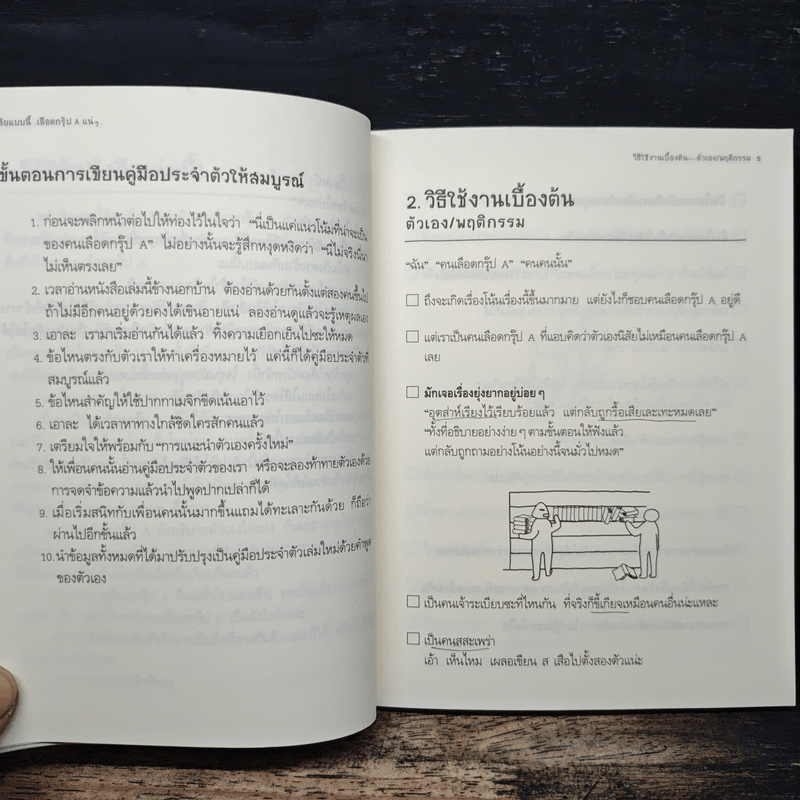 สัยแบบนี้ เลือดกรุ๊ป A แน่ๆ
ขั้นตอนการเขียนคู่มือประจำตัวให้สมบูรณ์
1. ก่อนจะพลิกหน้าต่อไปให้ท่องไว้ในใจว่า "นี่เป็นแค่แนวโน้มที่น่าจะเป็น
ของคนเลือดกรุ๊ป A" ไม่อย่างนั้นจะรู้สึกหงุดหงิดว่า "นี่ไม่จริงนี่นา
ไม่เห็นตรงเลย"
2. เวลาอ่านหนังสือเล่มนี้ข้างนอกบ้าน ต้องอ่านด้วยกันตั้งแต่สองคนขึ้นไป
ถ้าไม่มีอีกคนอยู่ด้วยคงได้เขินอายแน่ ลองอ่านดูแล้วจะรู้เหตุผลเอง
3. เอาละ เรามาเริ่มอ่านกันได้แล้ว ทิ้งความเยือกเย็นไปซะให้หมด
4. ข้อไหนตรงกับตัวเราให้ทำเครื่องหมายไว้ แค่นี้ก็ได้คู่มือประจำตัวที่
สมบูรณ์แล้ว
5. ข้อไหนสำคัญให้ใช้ปากกาเมจิกขีดเน้นเอาไว้
6. เอาละ ได้เวลาหาทางใกล้ชิดใครสักคนแล้ว
7. เตรียมใจให้พร้อมกับ "การแนะนำตัวเองครั้งใหม่"
8. ให้เพื่อนคนนั้นอ่านคู่มือประจำตัวของเรา หรือจะลองท้าทายตัวเองด้วย
การจดจำข้อความแล้วนำไปพูดปากเปล่าก็ได้
9. เมื่อเริ่มสนิทกับเพื่อนคนนั้นมากขึ้นแถมได้ทะเลาะกันด้วย ก็ถือว่า
ผ่านไปอีกขั้นแล้ว
10. นำข้อมูลทั้งหมดที่ได้มาปรับปรุงเป็นคู่มือประจำตัวเล่มใหม่ด้วยคำพูด
ของตัวเอง
วิธีใช้งานเบื้องต้น...ตัวเอง/พฤติกรรม 5
2. วิธีใช้งานเบื้องต้น
ตัวเอง/พฤติกรรม
"ฉัน" "คนเลือดกรุ๊ป A" "คนคนนั้น"
ถึงจะเกิดเรื่องโน้นเรื่องนี้ขึ้นมากมาย แต่ยังไงก็ชอบคนเลือดกรุ๊ป A อยู่ดี
แต่เราเป็นคนเลือดกรุ๊ป A ที่แอบคิดว่าตัวเองนิสัยไม่เหมือนคนเลือดกรุ๊ป A
เลย
มักเจอเรื่องยุ่งยากอยู่บ่อยๆ
"อุตส่าห์เรียงไว้เรียบร้อยแล้ว แต่กลับถูกรื้อเสียเละเทะหมดเลย"
"ทั้งที่อธิบายอย่างง่ายๆ ตามขั้นตอนให้ฟังแล้ว
แต่กลับถูกถามอย่างโน้นอย่างนี้จนมั่วไปหมด"
เป็นคนเจ้าระเบียบซะที่ไหนกัน ที่จริงก็ขี้เกียจเหมือนคนอื่นน่ะแหละ
เป็นคนสสะเพร่า
เอ้า เห็นไหม เผลอเขียน ส เสือไปตั้งสองตัวแน่ะ